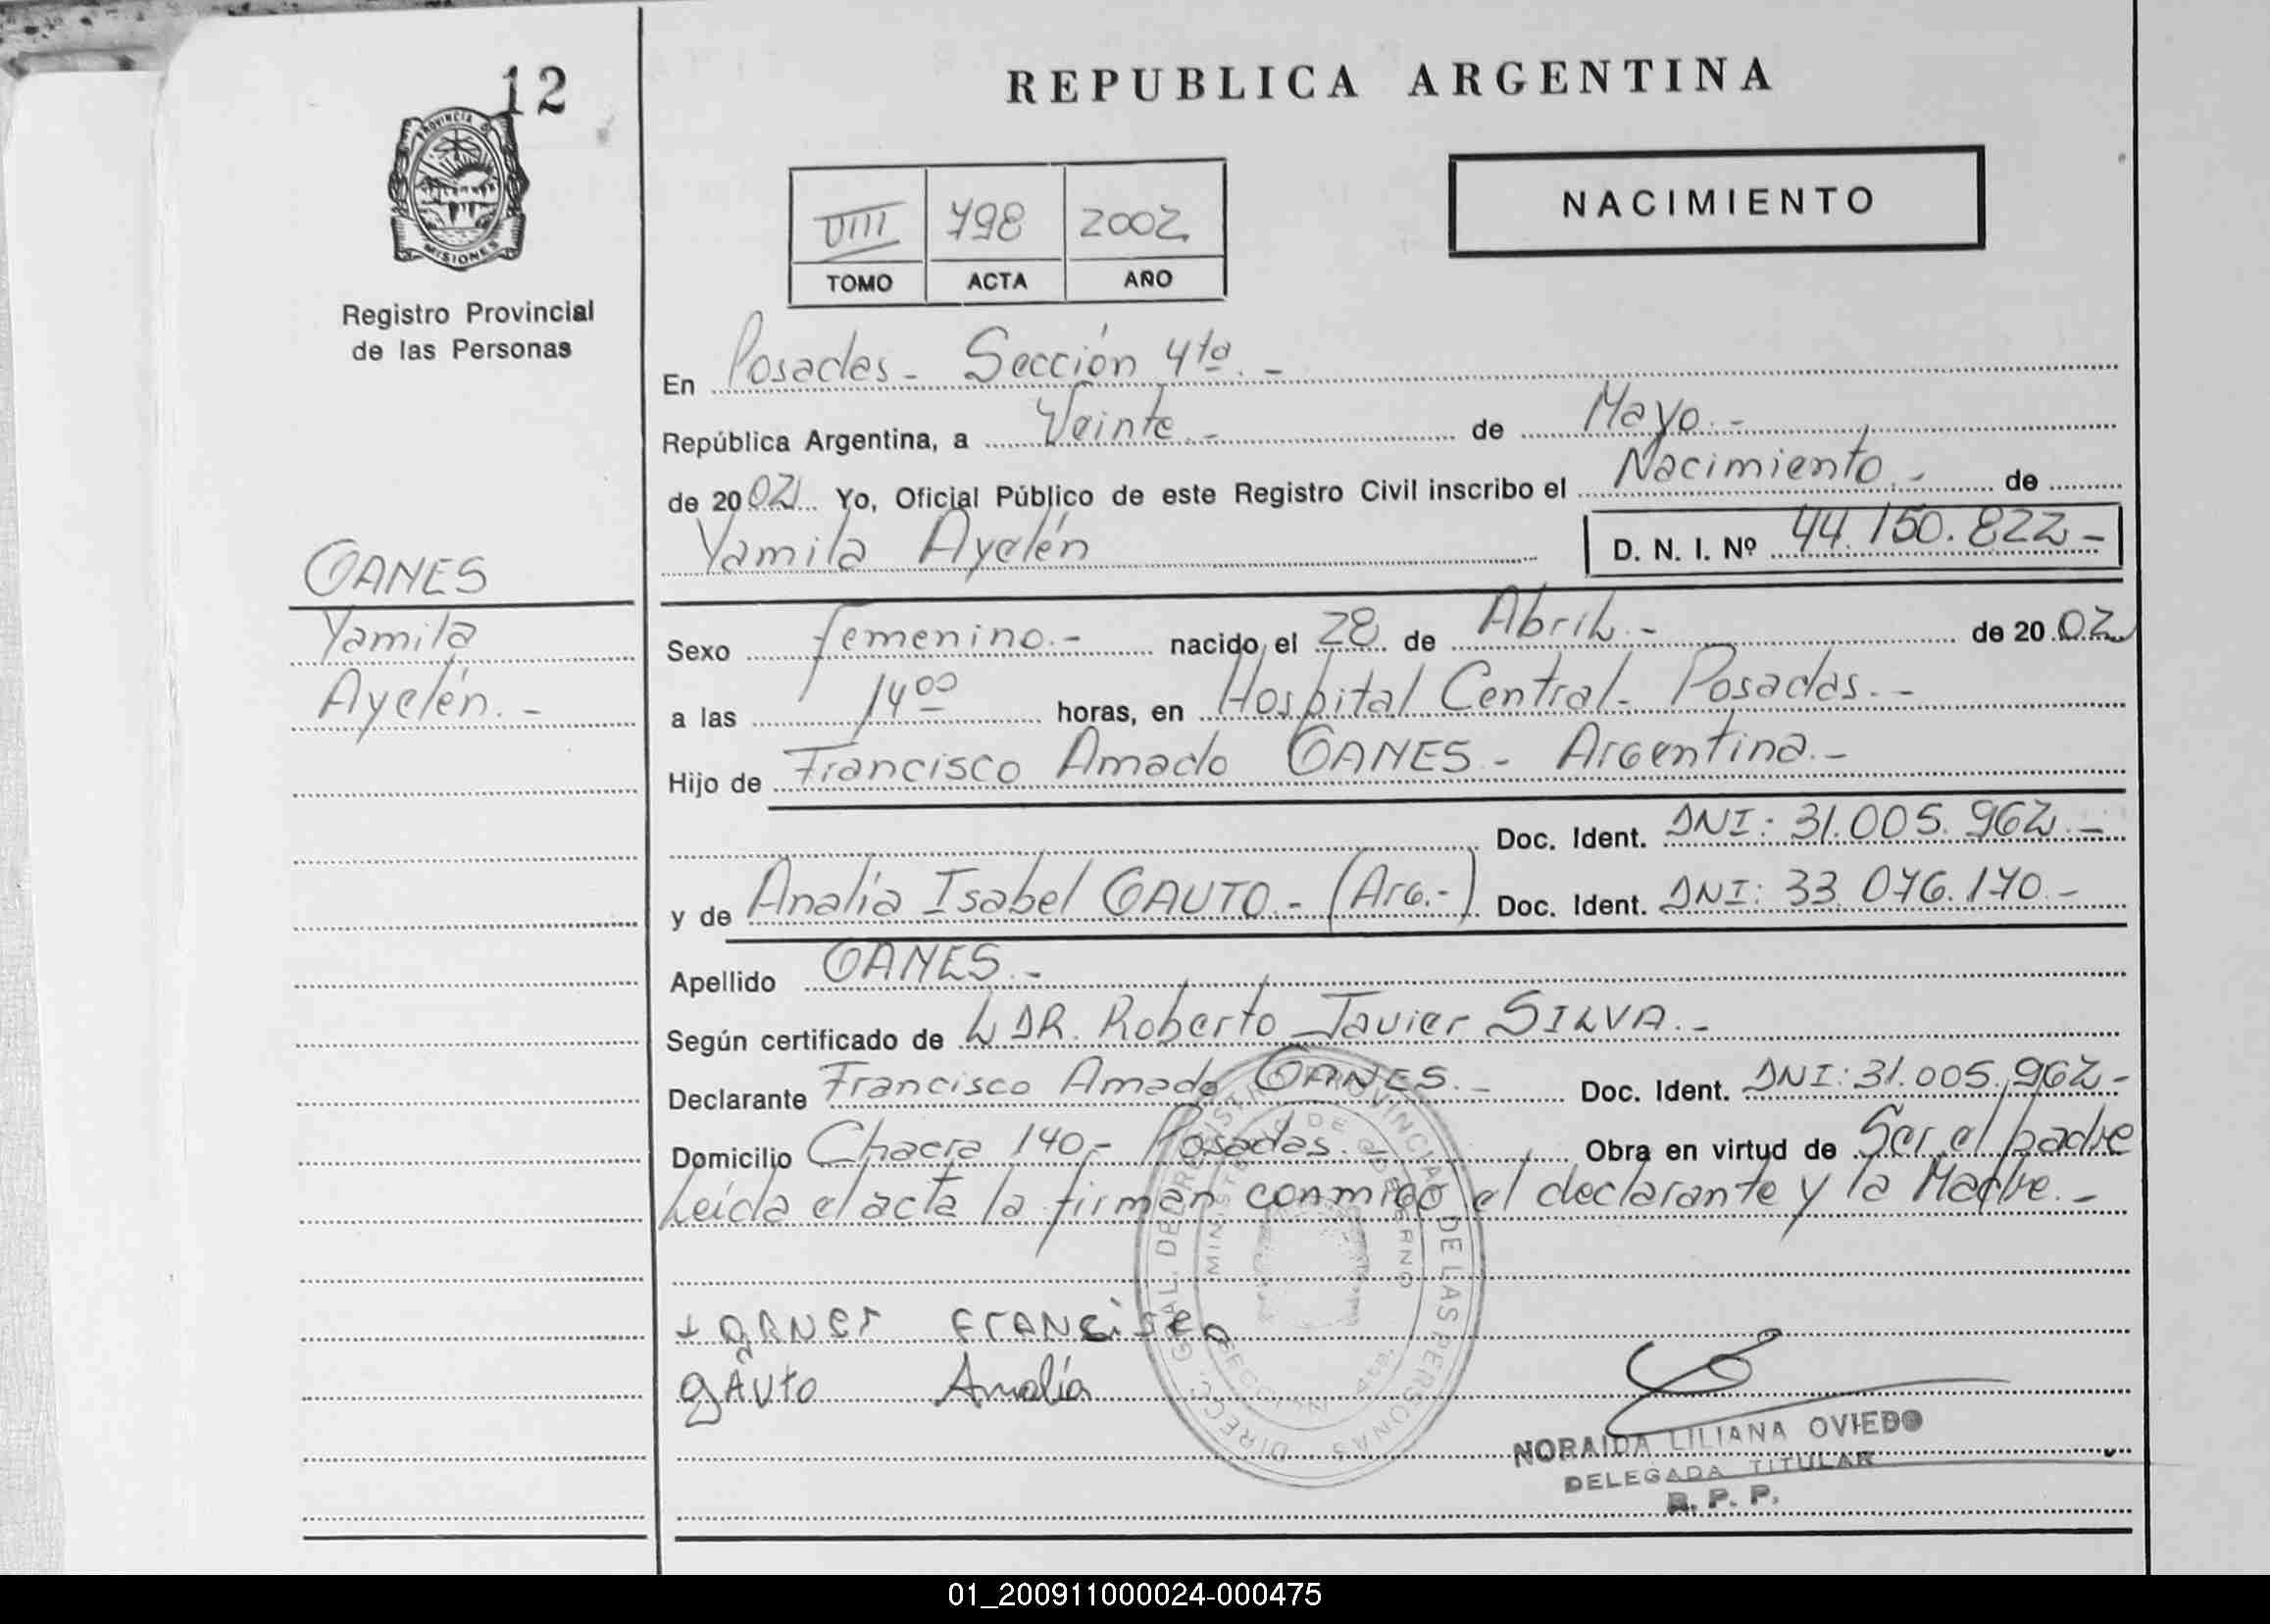 12
PROVINCIA D
MISIONES
Registro Provincial
de las Personas
REPUBLICA ARGENTINA
NACIMIENTO
VIII 798 2002
TOMO ACTA AÑO
En Posadas - Sección 4ta. -
República Argentina, a Veinte. - de Mayo. -
de 2002 Yo, Oficial Público de este Registro Civil inscribo el Nacimiento. - de
Yamila Ayelén D. N. I. Nº 44.150.822 -
GANES
Yamila
Ayelén. -
Sexo femenino. - nacido el 28 de Abril. - de 2002
a las 14 00 horas, en Hospital Central - Posadas. -
Hijo de Francisco Amado GANES - Argentina. -
Doc. Ident. DNI: 31.005.962. -
y de Analia Isabel GAUTO. - (Arg. -) Doc. Ident. DNI: 33.076.170. -
Apellido GANES. -
Según certificado de DR. Roberto Javier SILVA. -
Declarante Francisco Amado GANES. - Doc. Ident. DNI: 31.005.962 -
Domicilio Chacra 140, - Posadas. - Obra en virtud de Ser el padre
Leída el acta la firman conmigo el declarante y la Madre. -
GANES FRANCISCO
gAUto Analía
DIRECC. GRAL. DEL REGISTRO PROVINCIAL DE LAS PERSONAS
MINISTERIO DE GOBIERNO
NORAIDA LILIANA OVIEDO
DELEGADA TITULAR
R. P. P.
01_200911000024-000475